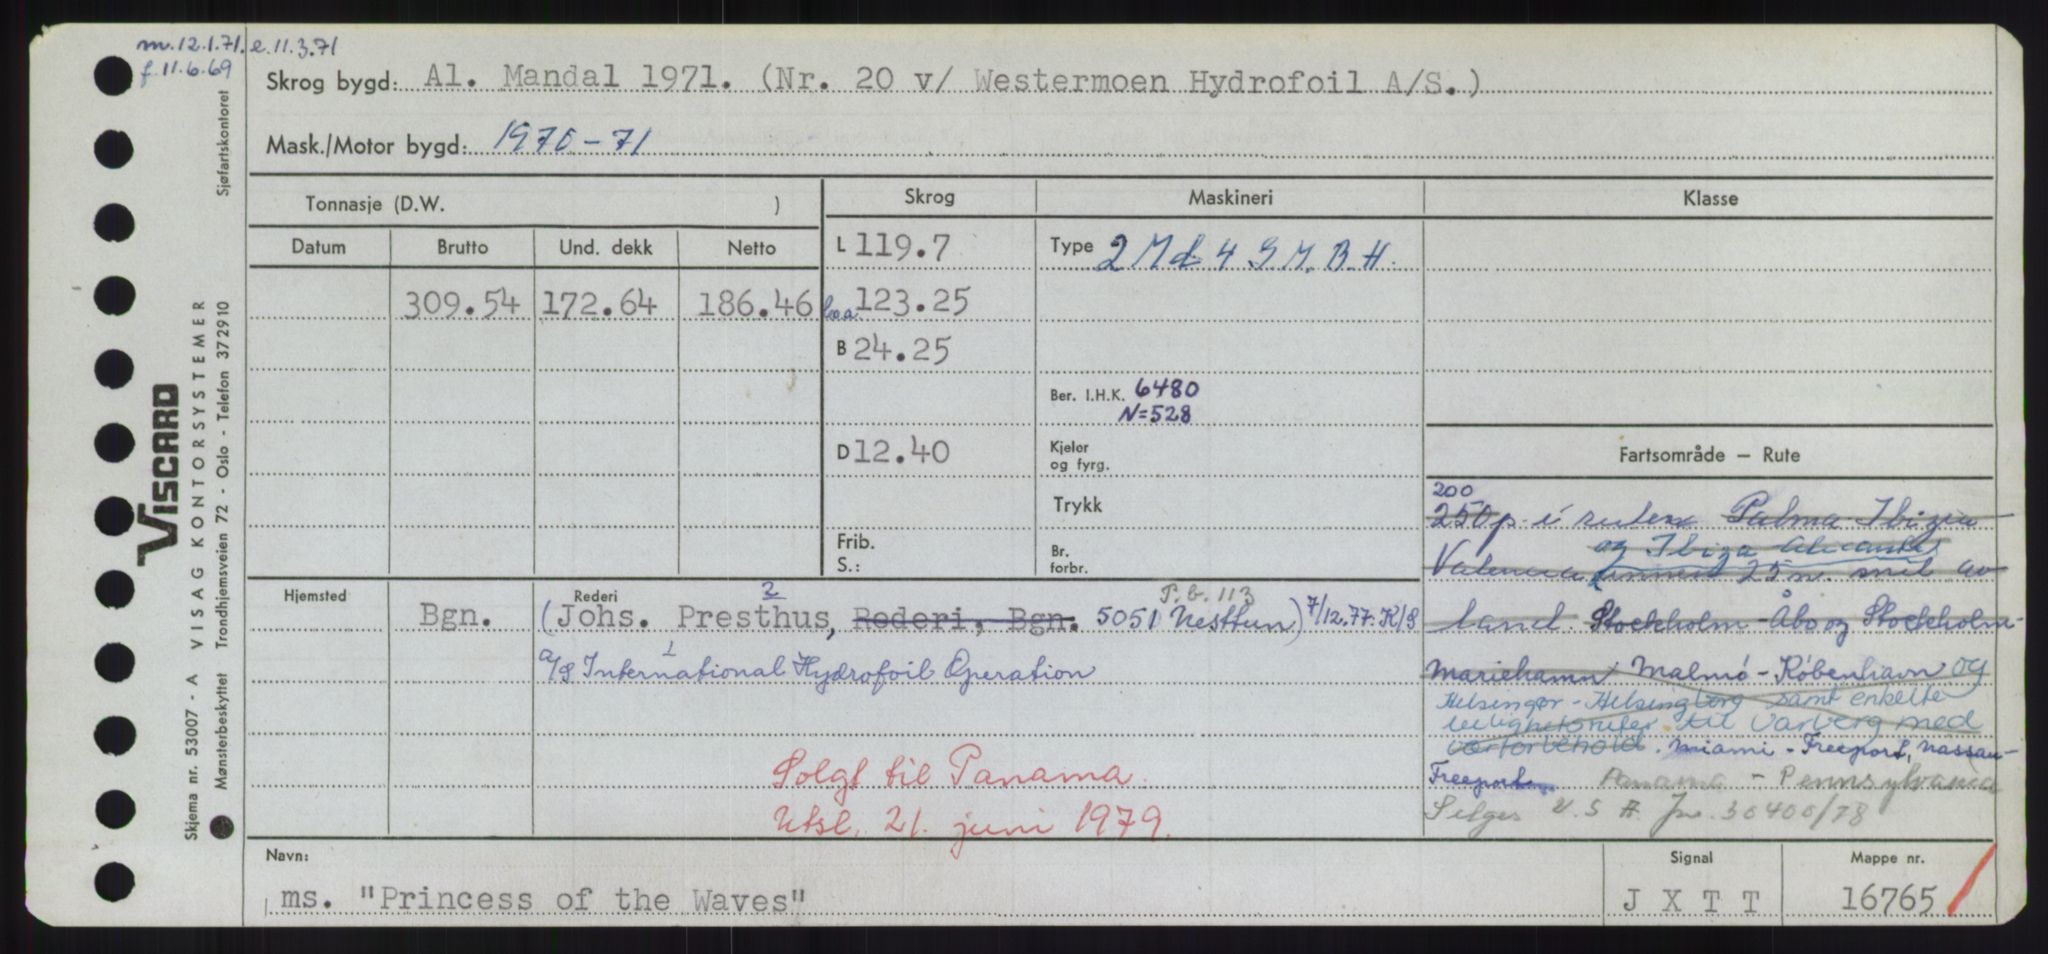 m. 12.1.71. e. 11.3.71
f. 11.6.69
Skrog bygd: Al. Mandal 1971. (Nr. 20 v/ Westermoen Hydrofoil A/S.)
Mask./Motor bygd: 1970-71
Tonnasje (D.W. )
Skrog
Maskineri
Klasse
Datum Brutto Und. dekk Netto
L 119.7
Type 2 Md 4 S M. B. H.
309.54 172.64 186.46
loa 123.25
B 24.25
Ber. I.H.K. 6480
N=528
D 12.40
Kjeler
og fyrg.
Fartsområde – Rute
Trykk
200
250 p. i ruten Palma Ibiza
og Ibiza Alicante
Frib.
S.:
Br.
forbr.
Valencia innen 25 n. mil av
Hjemsted
Rederi
2
P.b. 113
Bgn. (Johs. Presthus, Rederi, Bgn. 5051 Nesttun) 7/12.77. K/S
land. Stockholm - Åbo og Stockholm-
1
A/S International Hydrofoil Operation
Mariehamn Malmö - København og
Helsingør - Helsingborg samt enkelte
leilighetsturer til Varberg med
værforbehold. Miami - Freeport, Nassau-
Freeport Panama - Pennsylvania
Solgt til Panama.
Selges U.S.A. Jnr. 30400/78
Utsl. 21. juni 1979.
Navn:
Signal
Mappe nr.
ms. "Princess of the Waves"
J X T T
16765
VISCARD
VISAG KONTORSYSTEMER
Skjema nr. 53007 - A
Mønsterbeskyttet Trondhjemsveien 72 - Oslo - Telefon 37 29 10
Sjøfartskontoret